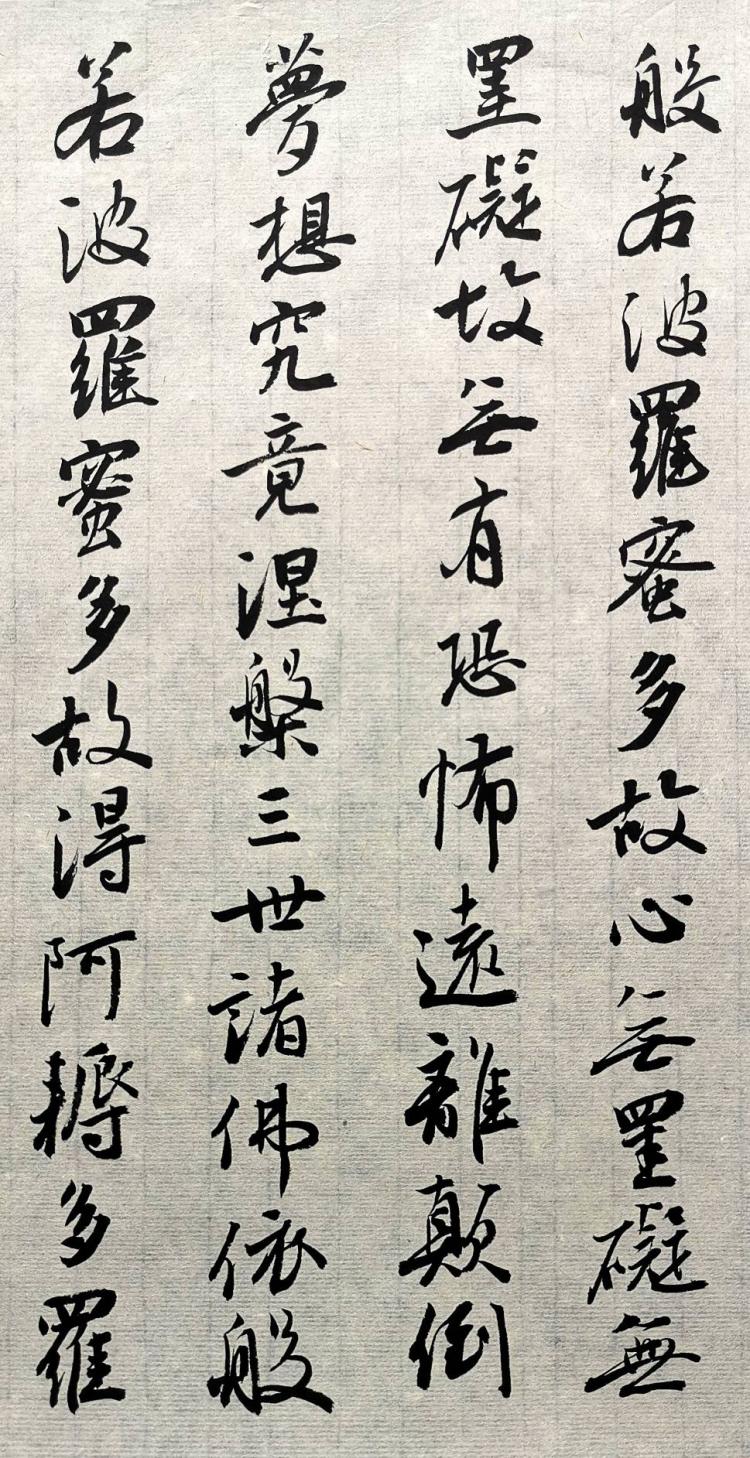 般若波羅蜜多故心無罣礙無
罣礙故無有恐怖遠離顛倒
夢想究竟涅槃三世諸佛依般
若波羅蜜多故得阿耨多羅